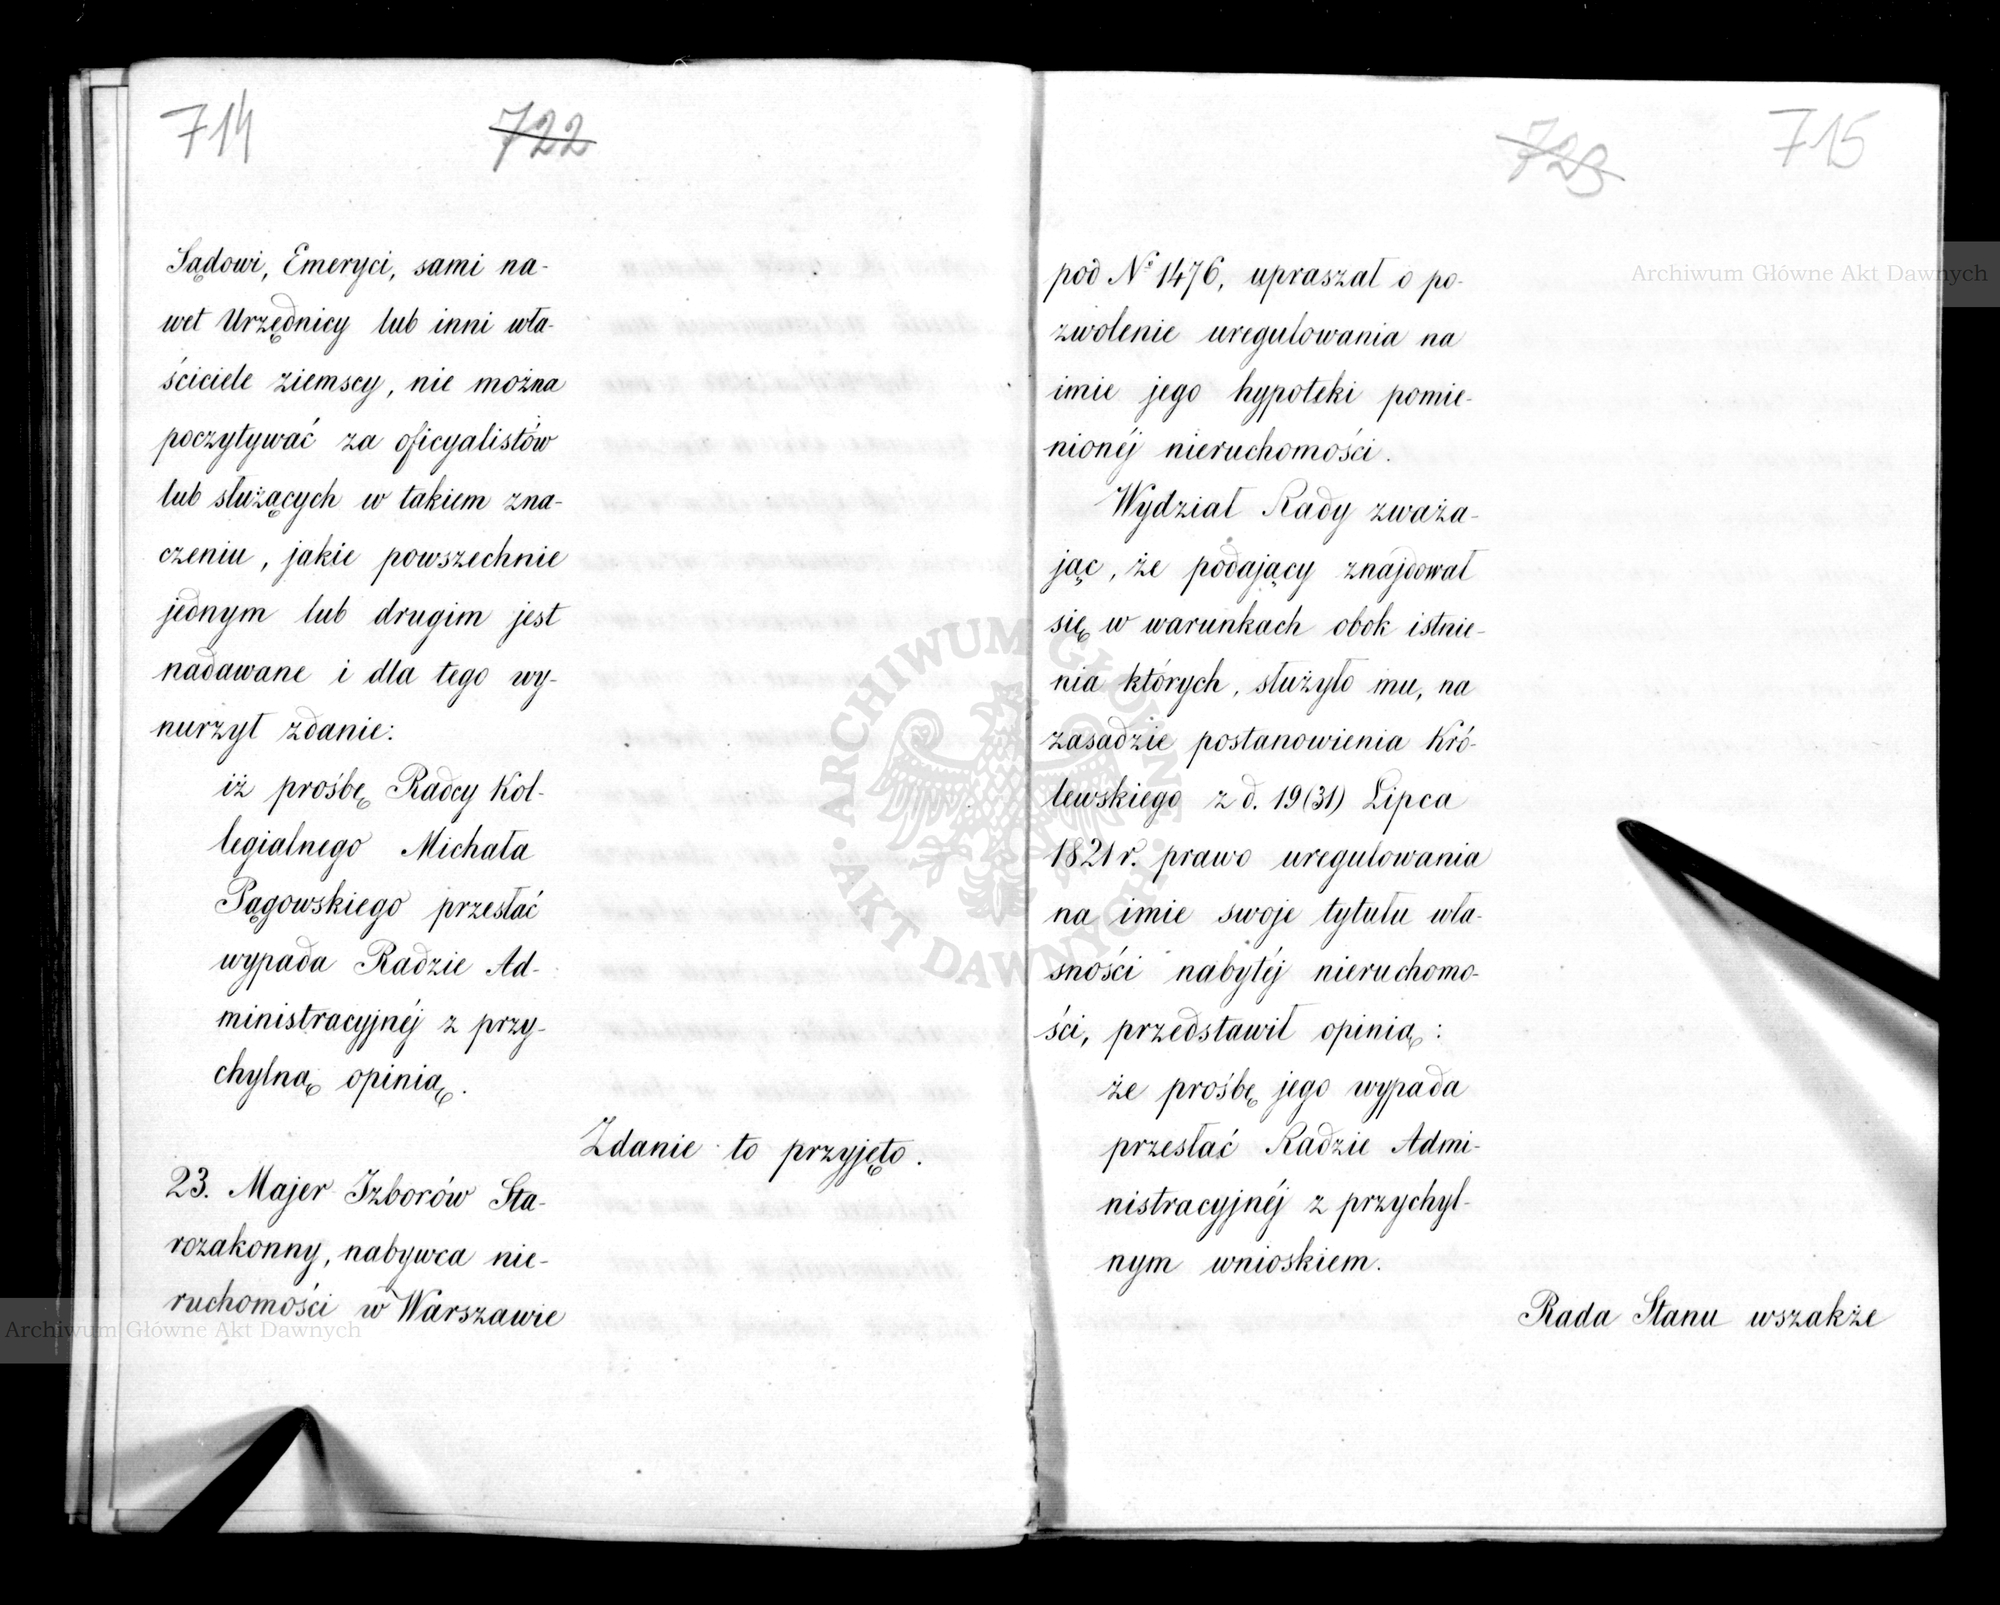 714
722
Sądowi, Emeryci, sami na-
wet Urzędnicy lub inni wła-
ściciele ziemscy, nie można
poczytywać za oficyalistów
lub służących w takiem zna-
czeniu, jakie powszechnie
jednym lub drugim jest
nadawane i dla tego wy-
nurzył zdanie:
iż prośbę Radcy Kol-
legialnego Michała
Pągowskiego przesłać
wypada Radzie Ad-
ministracyjnéj z przy-
chylną opinią.
Zdanie to przyjęto.
23. Majer Izborów Sta-
rozakonny, nabywca nie-
ruchomości w Warszawie
723
715
pod Nº 1476, upraszał o po-
zwolenie uregulowania na
imie jego hypoteki pomie-
nionéj nieruchomości.
Wydział Rady zważa-
jąc, że podający znajdował
się w warunkach obok istnie-
nia których, służyło mu, na
zasadzie postanowienia Kró-
lewskiego z d. 19 (31) Lipca
1821 r. prawo uregulowania
na imie swoje tytułu wła-
sności nabytéj nieruchomo-
ści, przedstawił opinią:
że prośbę jego wypada
przesłać Radzie Admi-
nistracyjnéj z przychyl-
nym wnioskiem.
Rada Stanu wszakże
Archiwum Główne Akt Dawnych
Archiwum Główne Akt Dawnych
ARCHIWUM GŁÓWNE
AKT DAWNYCH